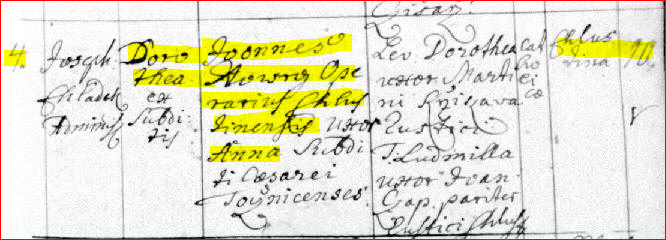 4. Joseph Chladek Adminis
Doro thea ex Subdi tis
Joannes
Howrq Ope
rarius Chlus
tinensis Uxor
Anna Subdi
ti Cæsarei
Toÿnicenses
Lev. Dorothea
uxor Marti
ni
Rustici
T. Ludmilla
uxor Joan:
Gap. pariter
Rustici Chlust
cat ho ci cæ
Chlus tina
10.